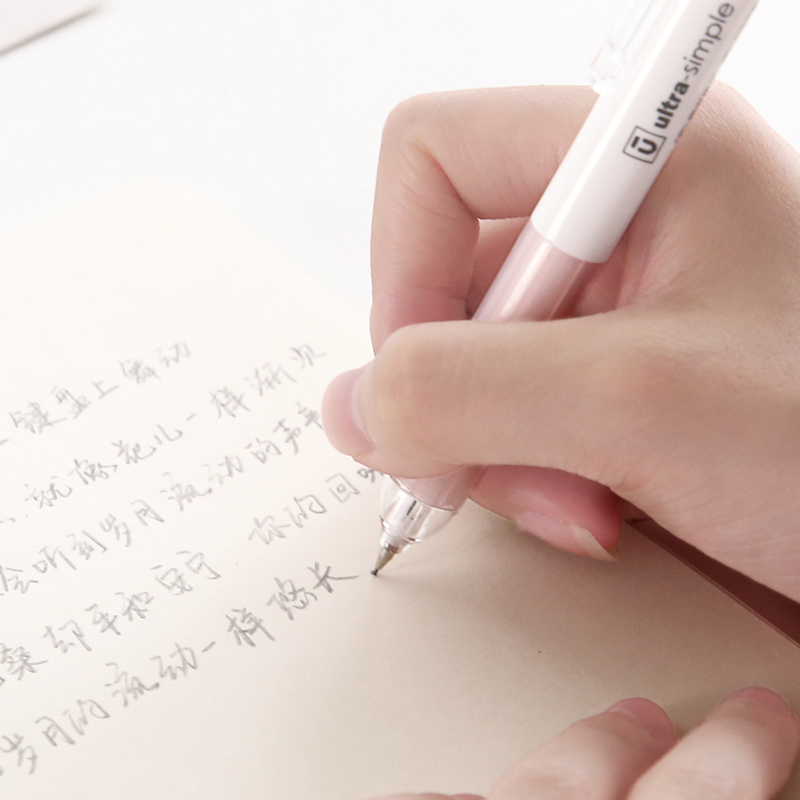 ultra-simple
键盘上舞动
就像花儿一样渐次
会听到岁月流动的声音
却平和安宁.你的回
岁月的流动一样悠长